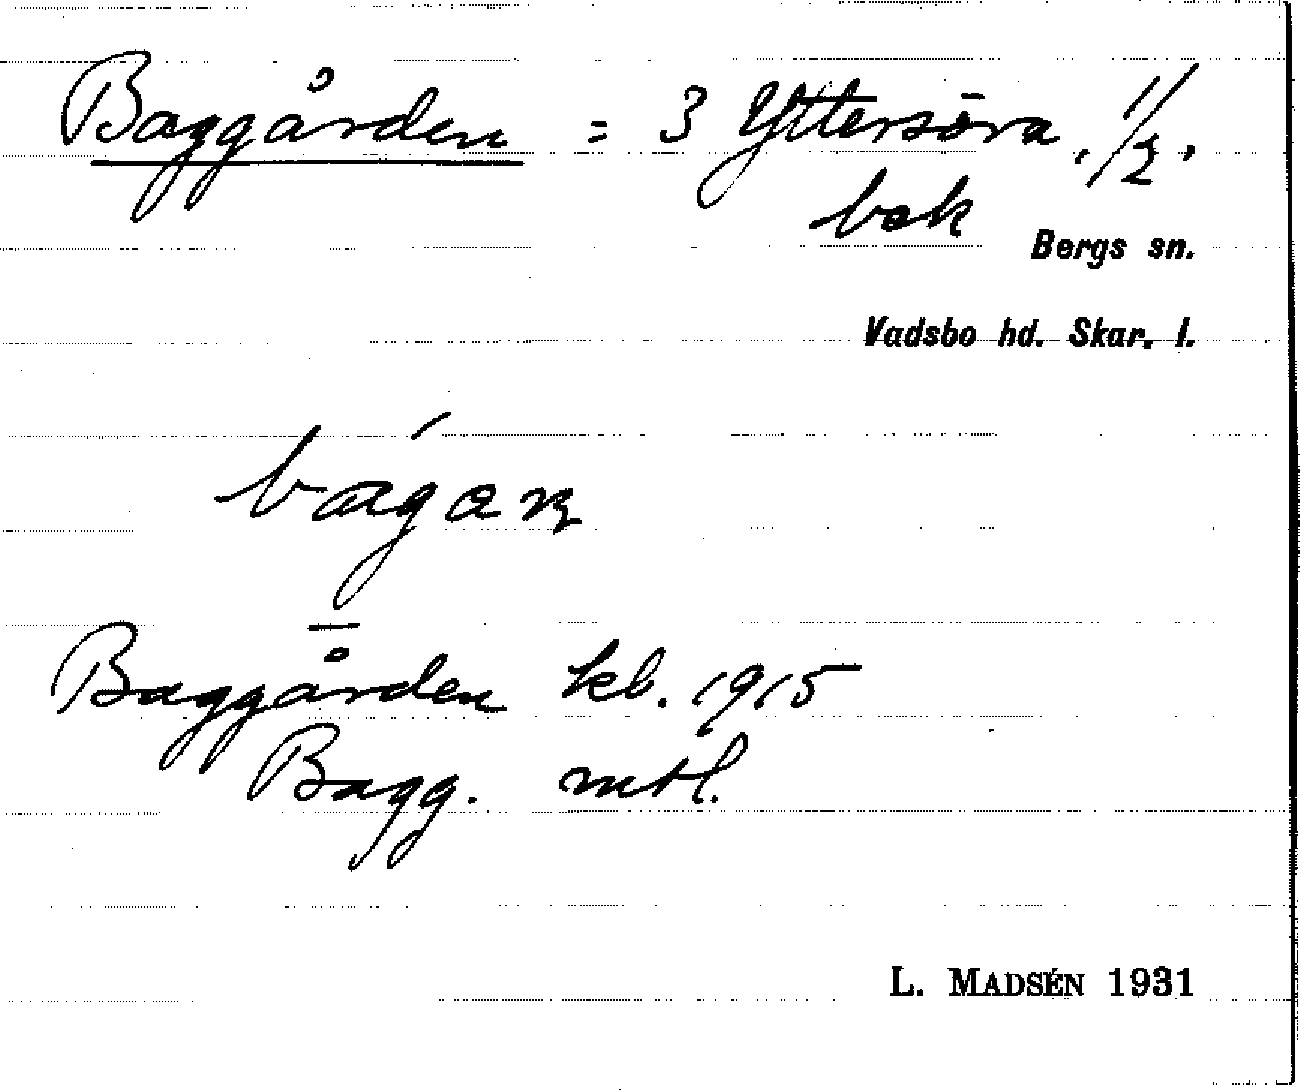 Baggården = 3 Yttersöra, 1/2.
bok
Bergs sn.
Vadsbo hd. Skar. l.
Baggården kb. 1915
Bagg. mtl.
L. MADSÉN 1931